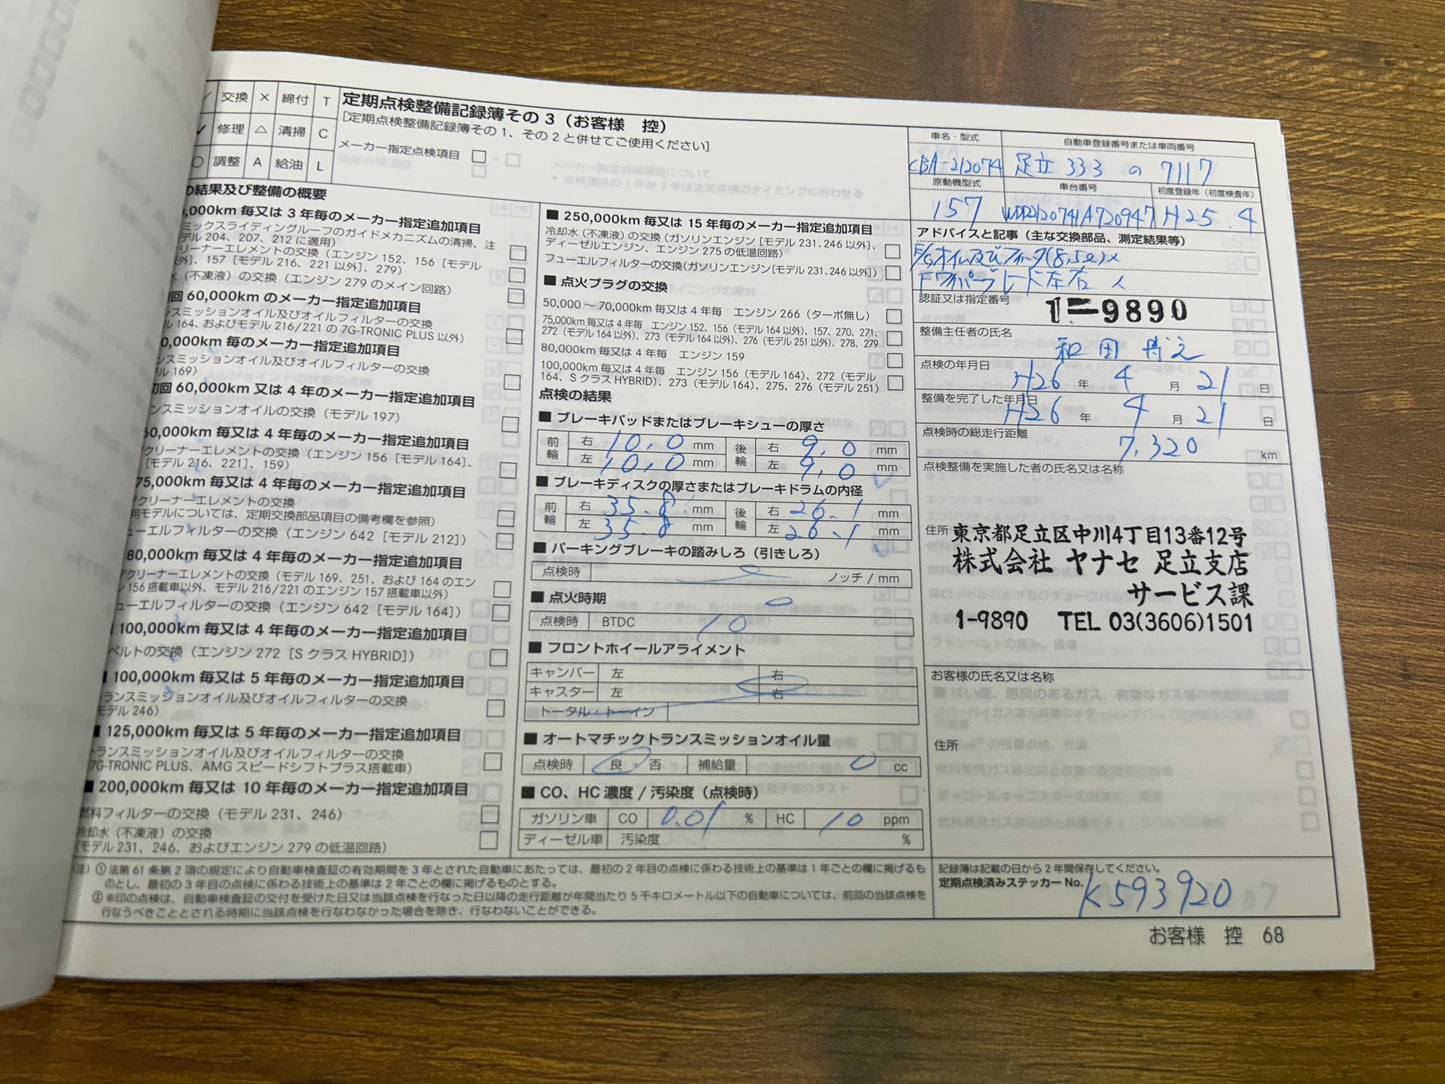 交換 × 締付 T
修理 △ 清掃 C
調整 A 給油 L
定期点検整備記録簿その 3（お客様 控）
[定期点検整備記録簿その 1、その 2 と併せてご使用ください]
メーカー指定点検項目
の結果及び整備の概要
,000km 毎又は 3 年毎のメーカー指定追加項目
ミックスライディングルーフのガイドメカニズムの清掃、注
デル 204、207、212 に適用)
の交換（エンジン 152、156［モデル
以外]、157［モデル 216、221 以外]、279）
水（不凍液）の交換（エンジン 279 のメイン回路）
初回 60,000km のメーカー指定追加項目
ンスミッションオイル及びオイルフィルターの交換
164、およびモデル 216/221 の 7G-TRONIC PLUS 以外）
0,000km 毎のメーカー指定追加項目
ンスミッションオイル及びオイルフィルターの交換
169）
初回 60,000km 又は 4 年毎のメーカー指定追加項目
ンスミッションオイルの交換（モデル 197）
60,000km 毎又は 4 年毎のメーカー指定追加項目
クリーナーエレメントの交換（エンジン 156［モデル 164］、
［モデル 216、221］、159）
75,000km 毎又は 4 年毎のメーカー指定追加項目
アクリーナーエレメントの交換
用モデルについては、定期交換部品項目の備考欄を参照）
ューエルフィルターの交換（エンジン 642［モデル 212］）
80,000km 毎又は 4 年毎のメーカー指定追加項目
アクリーナーエレメントの交換（モデル 169、251、および 164 のエン
156 搭載車以外、モデル 216/221 のエンジン 157 搭載車以外）
ューエルフィルターの交換（エンジン 642［モデル 164］）
100,000km 毎又は 4 年毎のメーカー指定追加項目
ベルトの交換（エンジン 272［S クラス HYBRID］）
■ 100,000km 毎又は 5 年毎のメーカー指定追加項目
トランスミッションオイル及びオイルフィルターの交換
モデル 246）
■ 125,000km 毎又は 5 年毎のメーカー指定追加項目
トランスミッションオイル及びオイルフィルターの交換
7G-TRONIC PLUS、AMG スピードシフトプラス搭載車）
■ 200,000km 毎又は 10 年毎のメーカー指定追加項目
燃料フィルターの交換（モデル 231、246）
冷却水（不凍液）の交換
（モデル 231、246、およびエンジン 279 の低温回路）
■ 250,000km 毎又は 15 年毎のメーカー指定追加項目
冷却水（不凍液）の交換（ガソリンエンジン［モデル 231、246 以外］、
ディーゼルエンジン、エンジン 275 の低温回路）
フューエルフィルターの交換（ガソリンエンジン［モデル 231、246 以外］）
■ 点火プラグの交換
50,000 ～ 70,000km 毎又は 4 年毎 エンジン 266（ターボ無し）
75,000km 毎又は 4 年毎 エンジン 152、156（モデル 164 以外）、157、270、271、
272（モデル 164 以外）、273（モデル 164 以外）、276（モデル 251 以外）、278、279
80,000km 毎又は 4 年毎 エンジン 159
100,000km 毎又は 4 年毎 エンジン 156（モデル 164）、272（モデル
164、S クラス HYBRID）、273（モデル 164）、275、276（モデル 251）
点検の結果
■ ブレーキパッドまたはブレーキシューの厚さ
前輪 右 10,0 mm 後輪 右 9,0 mm
左 10,0 mm 左 9,0 mm
■ ブレーキディスクの厚さまたはブレーキドラムの内径
前輪 右 35.8 mm 後輪 右 26.1 mm
左 35.8 mm 左 26.1 mm
■ パーキングブレーキの踏みしろ（引きしろ）
点検時 ノッチ / mm
■ 点火時期
点検時 BTDC 10
■ フロントホイールアライメント
キャンバー 左 右
キャスター 左 右
トータル・トーイン
■ オートマチックトランスミッションオイル量
点検時 良 否 補給量 0 cc
■ CO、HC 濃度 / 汚染度（点検時）
ガソリン車 CO 0.01 % HC 10 ppm
ディーゼル車 汚染度 %
車名・型式 自動車登録番号または車両番号
CBA-212074 足立 333 の 7117
原動機型式 車台番号 初度登録年（初度検査年）
157 WDD2120741A720947 H25.4
アドバイスと記事（主な交換部品、測定結果等）
E/Gオイル及びフィルター(8,5ℓ)×
Fワイパーブレード左右 ×
認証又は指定番号 1-9890
整備主任者の氏名
点検の年月日 H26 年 4 月 21 日
整備を完了した年月日 H26 年 4 月 21 日
点検時の総走行距離 7,320 km
点検整備を実施した者の氏名又は名称
住所 東京都足立区中川4丁目13番12号
株式会社 ヤナセ 足立支店
サービス課
1-9890 TEL 03(3606)1501
お客様の氏名又は名称
住所
記録簿は記載の日から 2 年間保存してください。
定期点検済みステッカー No. K593920
（注）①法第 61 条第 2 項の規定により自動車検査証の有効期間を 3 年とされた自動車にあたっては、最初の 2 年目の点検に係わる技術上の基準は 1 年ごとの欄に掲げるも
のとし、最初の 3 年目の点検に係わる技術上の基準は 2 年ごとの欄に掲げるものとする。
②※印の点検は、自動車検査証の交付を受けた日又は当該点検を行なった日以降の走行距離が年間当たり 5 千キロメートル以下の自動車については、前回の当該点検を
行なうべきこととされる時期に当該点検を行なわなかった場合を除き、行なわないことができる。
お客様 控 68